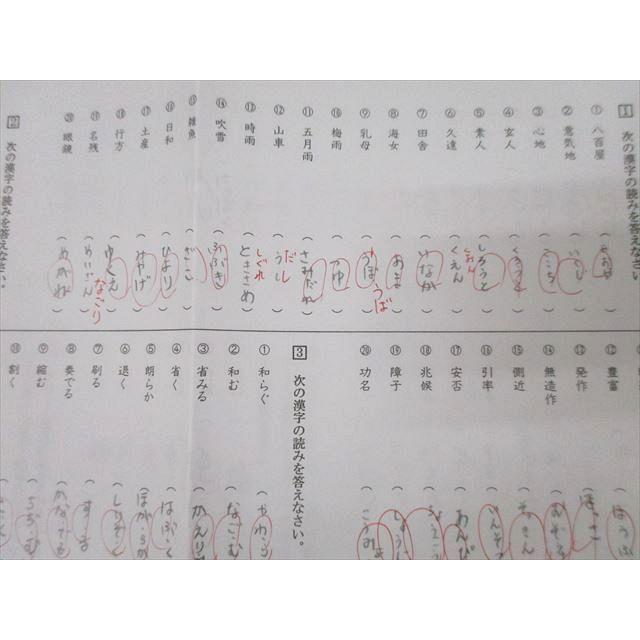 1 次の漢字の読みを答えなさい。
① 八百屋 (やおや)
② 意気地 (いくじ)
③ 心地 (ここち)
④ 玄人 (くろうと)
⑤ 素人 (しろうと)
⑥ 久遠 (くえん) くおん
⑦ 田舎 (いなか)
⑧ 海女 (あま)
⑨ 乳母 (うば) うば
⑩ 梅雨 (つゆ)
⑪ 五月雨 (さみだれ)
⑫ 山車 (うし) だし
⑬ 時雨 (ときさめ) しぐれ
⑭ 吹雪 (ふぶき)
⑮ 雑魚 (ざこ)
⑯ 日和 (ひより)
⑰ 土産 (みやげ)
⑱ 行方 (ゆくえ)
⑲ 名残 (めいざん) なごり
⑳ 眼鏡 (めがね)
2 次の漢字の読みを答えなさい。
⑫ 豊富 (ほうふ
⑬ 発作 (ほっさ
⑭ 無造作
⑮ 側近 (そっきん
⑯ 引率 (いんそつ
⑰ 安否 (あんぴ
⑱ 兆候
⑲ 障子 (しょうじ
⑳ 功名 (こうみ
3 次の漢字の読みを答えなさい。
① 和らぐ (やわら
② 和む (なごむ
③ 省みる (かえり
④ 省く (はぶく
⑤ 朗らか (ほがらか
⑥ 退く (しりぞ
⑦ 刷る (する
⑧ 奏でる (かなでる
⑨ 縮む (ちぢむ
⑩ 割く